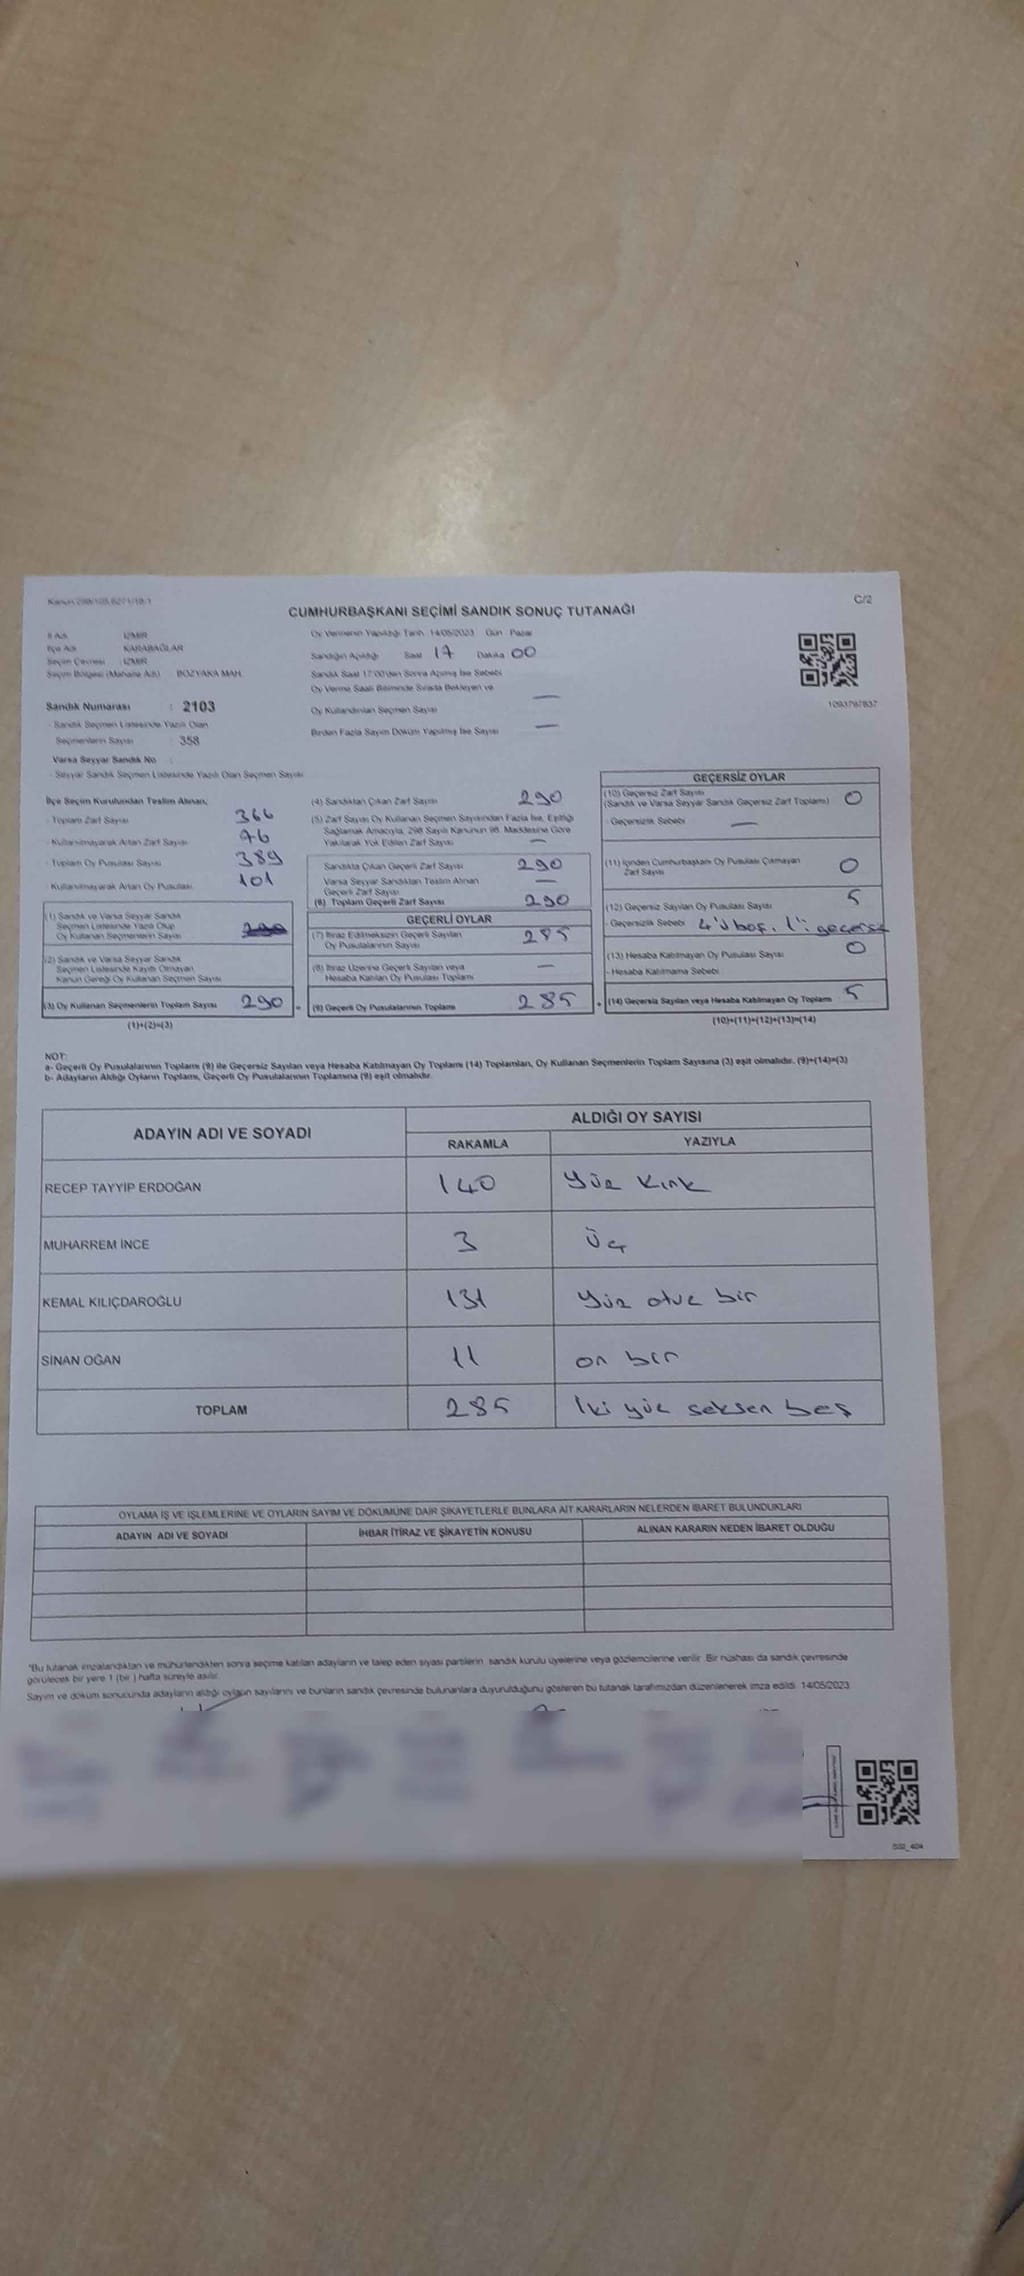 Kanun 298/105,6271/18-1
C/2
CUMHURBAŞKANI SEÇİMİ SANDIK SONUÇ TUTANAĞI
İl Adı : İZMİR
İlçe Adı : KARABAĞLAR
Seçim Çevresi : İZMİR
Seçim Bölgesi (Mahalle Adı) : BOZYAKA MAH.
Sandık Numarası : 2103
- Sandık Seçmen Listesinde Yazılı Olan
Seçmenlerin Sayısı : 358
Varsa Seyyar Sandık No :
- Seyyar Sandık Seçmen Listesinde Yazılı Olan Seçmen Sayısı
Oy Vermenin Yapıldığı Tarih 14/05/2023 Gün Pazar
Sandığın Açıldığı Saat 17 Dakika 00
Sandık Saat 17:00'den Sonra Açılmış İse Sebebi
Oy Verme Saati Bitiminde Sırada Bekleyen ve
Oy Kullandırılan Seçmen Sayısı —
Birden Fazla Sayım Döküm Yapılmış İse Sayısı —
1093797837
İlçe Seçim Kurulundan Teslim Alınan;
- Toplam Zarf Sayısı 366
- Kullanılmayarak Artan Zarf Sayısı 76
- Toplam Oy Pusulası Sayısı 389
- Kullanılmayarak Artan Oy Pusulası 101
(1) Sandık ve Varsa Seyyar Sandık
Seçmen Listesinde Yazılı Olup
Oy Kullanan Seçmenlerin Sayısı
(2) Sandık ve Varsa Seyyar Sandık
Seçmen Listesinde Kayıtlı Olmayan
Kanun Gereği Oy Kullanan Seçmen Sayısı
(3) Oy Kullanan Seçmenlerin Toplam Sayısı 290
(1)+(2)=(3)
(4) Sandıktan Çıkan Zarf Sayısı 290
(5) Zarf Sayısı Oy Kullanan Seçmen Sayısından Fazla İse, Eşitliği
Sağlamak Amacıyla, 298 Sayılı Kanunun 98. Maddesine Göre
Yakılarak Yok Edilen Zarf Sayısı —
Sandıkta Çıkan Geçerli Zarf Sayısı 290
Varsa Seyyar Sandıktan Teslim Alınan
Geçerli Zarf Sayısı —
(6) Toplam Geçerli Zarf Sayısı 290
GEÇERLİ OYLAR
(7) İtiraz Edilmeksizin Geçerli Sayılan
Oy Pusulalarının Sayısı 285
(8) İtiraz Üzerine Geçerli Sayılan veya
Hesaba Katılan Oy Pusulası Toplamı —
(9) Geçerli Oy Pusulalarının Toplamı 285
GEÇERSİZ OYLAR
(10) Geçersiz Zarf Sayısı
(Sandık ve Varsa Seyyar Sandık Geçersiz Zarf Toplamı) 0
- Geçersizlik Sebebi —
(11) İçinden Cumhurbaşkanı Oy Pusulası Çıkmayan
Zarf Sayısı 0
(12) Geçersiz Sayılan Oy Pusulası Sayısı 5
- Geçersizlik Sebebi 4'ü boş, 1'i geçersiz
(13) Hesaba Katılmayan Oy Pusulası Sayısı 0
- Hesaba Katılmama Sebebi
(14) Geçersiz Sayılan veya Hesaba Katılmayan Oy Toplamı 5
(10)+(11)+(12)+(13)=(14)
NOT:
a- Geçerli Oy Pusulalarının Toplamı (9) ile Geçersiz Sayılan veya Hesaba Katılmayan Oy Toplamı (14) Toplamları, Oy Kullanan Seçmenlerin Toplam Sayısına (3) eşit olmalıdır. (9)+(14)=(3)
b- Adayların Aldığı Oyların Toplamı, Geçerli Oy Pusulalarının Toplamına (9) eşit olmalıdır.
ADAYIN ADI VE SOYADI
ALDIĞI OY SAYISI
RAKAMLA YAZIYLA
RECEP TAYYİP ERDOĞAN 140 Yüz kırk
MUHARREM İNCE 3 Üç
KEMAL KILIÇDAROĞLU 131 Yüz otuz bir
SİNAN OĞAN 11 on bir
TOPLAM 285 İki yüz seksen beş
OYLAMA İŞ VE İŞLEMLERİNE VE OYLARIN SAYIM VE DÖKÜMÜNE DAİR ŞİKAYETLERLE BUNLARA AİT KARARLARIN NELERDEN İBARET BULUNDUKLARI
ADAYIN ADI VE SOYADI İHBAR İTİRAZ VE ŞİKAYETİN KONUSU ALINAN KARARIN NEDEN İBARET OLDUĞU
*Bu tutanak imzalandıktan ve mühürlendikten sonra seçime katılan adayların ve talep eden siyasi partilerin sandık kurulu üyelerine veya gözlemcilerine verilir. Bir nüshası da sandık çevresinde
görülecek bir yere 1 (bir ) hafta süreyle asılır.
Sayım ve döküm sonucunda adayların aldığı oyların sayılarını ve bunların sandık çevresinde bulunanlara duyurulduğunu gösteren bu tutanak tarafımızdan düzenlenerek imza edildi. 14/05/2023